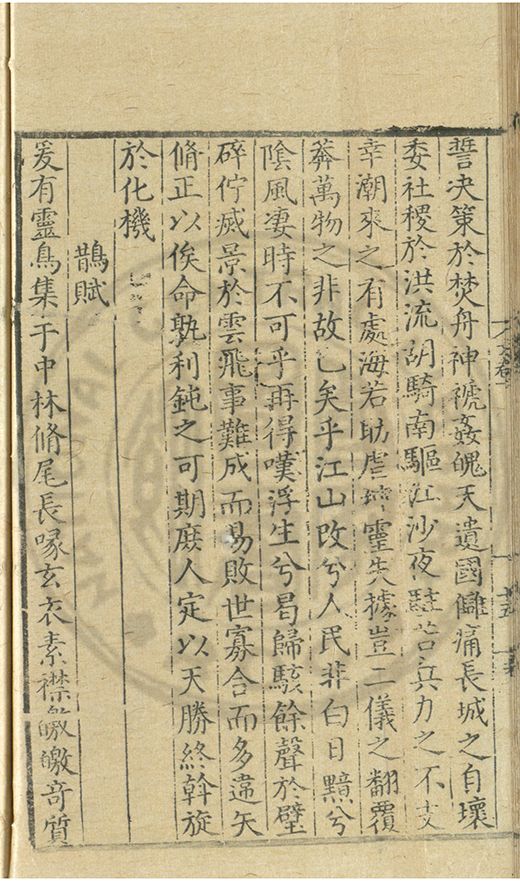 誓決策於焚舟神褫姦魄天遺國讎痛長城之自壞
委社稷於洪流胡騎南驅江沙夜駐苦兵力之不支
幸潮來之有處海若助虐靈先據豈二儀之翻覆
莾萬物之非故已矣乎江山改兮人民非白日黯兮
陰風凄時不可乎再得嘆浮生兮曷歸駭餘聲於壁
碎佇烕景於雲飛事難成而易敗世寡合而多違矢
脩正以俟命孰利鈍之可期庻人定以天勝終斡旋
於化機
鵲賦
爰有靈鳥集于中林脩尾長喙玄衣素襟皦皦竒質